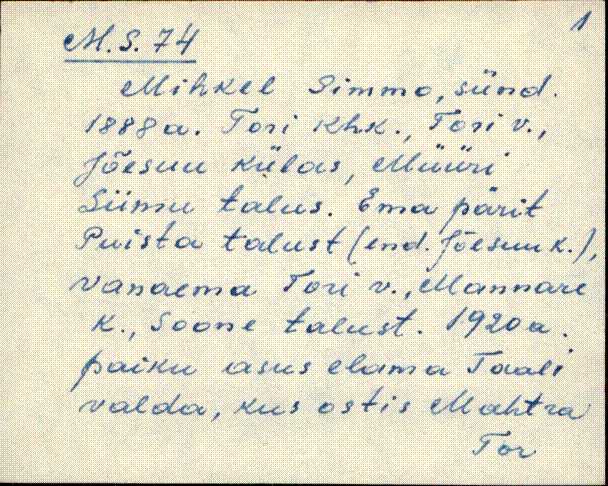 1
M.S. 74
Mihkel Simmo, sünd.
1888 a. Tori khk., Tori v.,
Jõesuu külas, Müüri
Siimu talus. Ema pärit
Puista talust (end. Jõesuu k.),
vanaema Tori v., Mannare
k., Soone talust. 1920 a.
paiku asus elama Taali
valda, kus ostis Mahtra
Tor